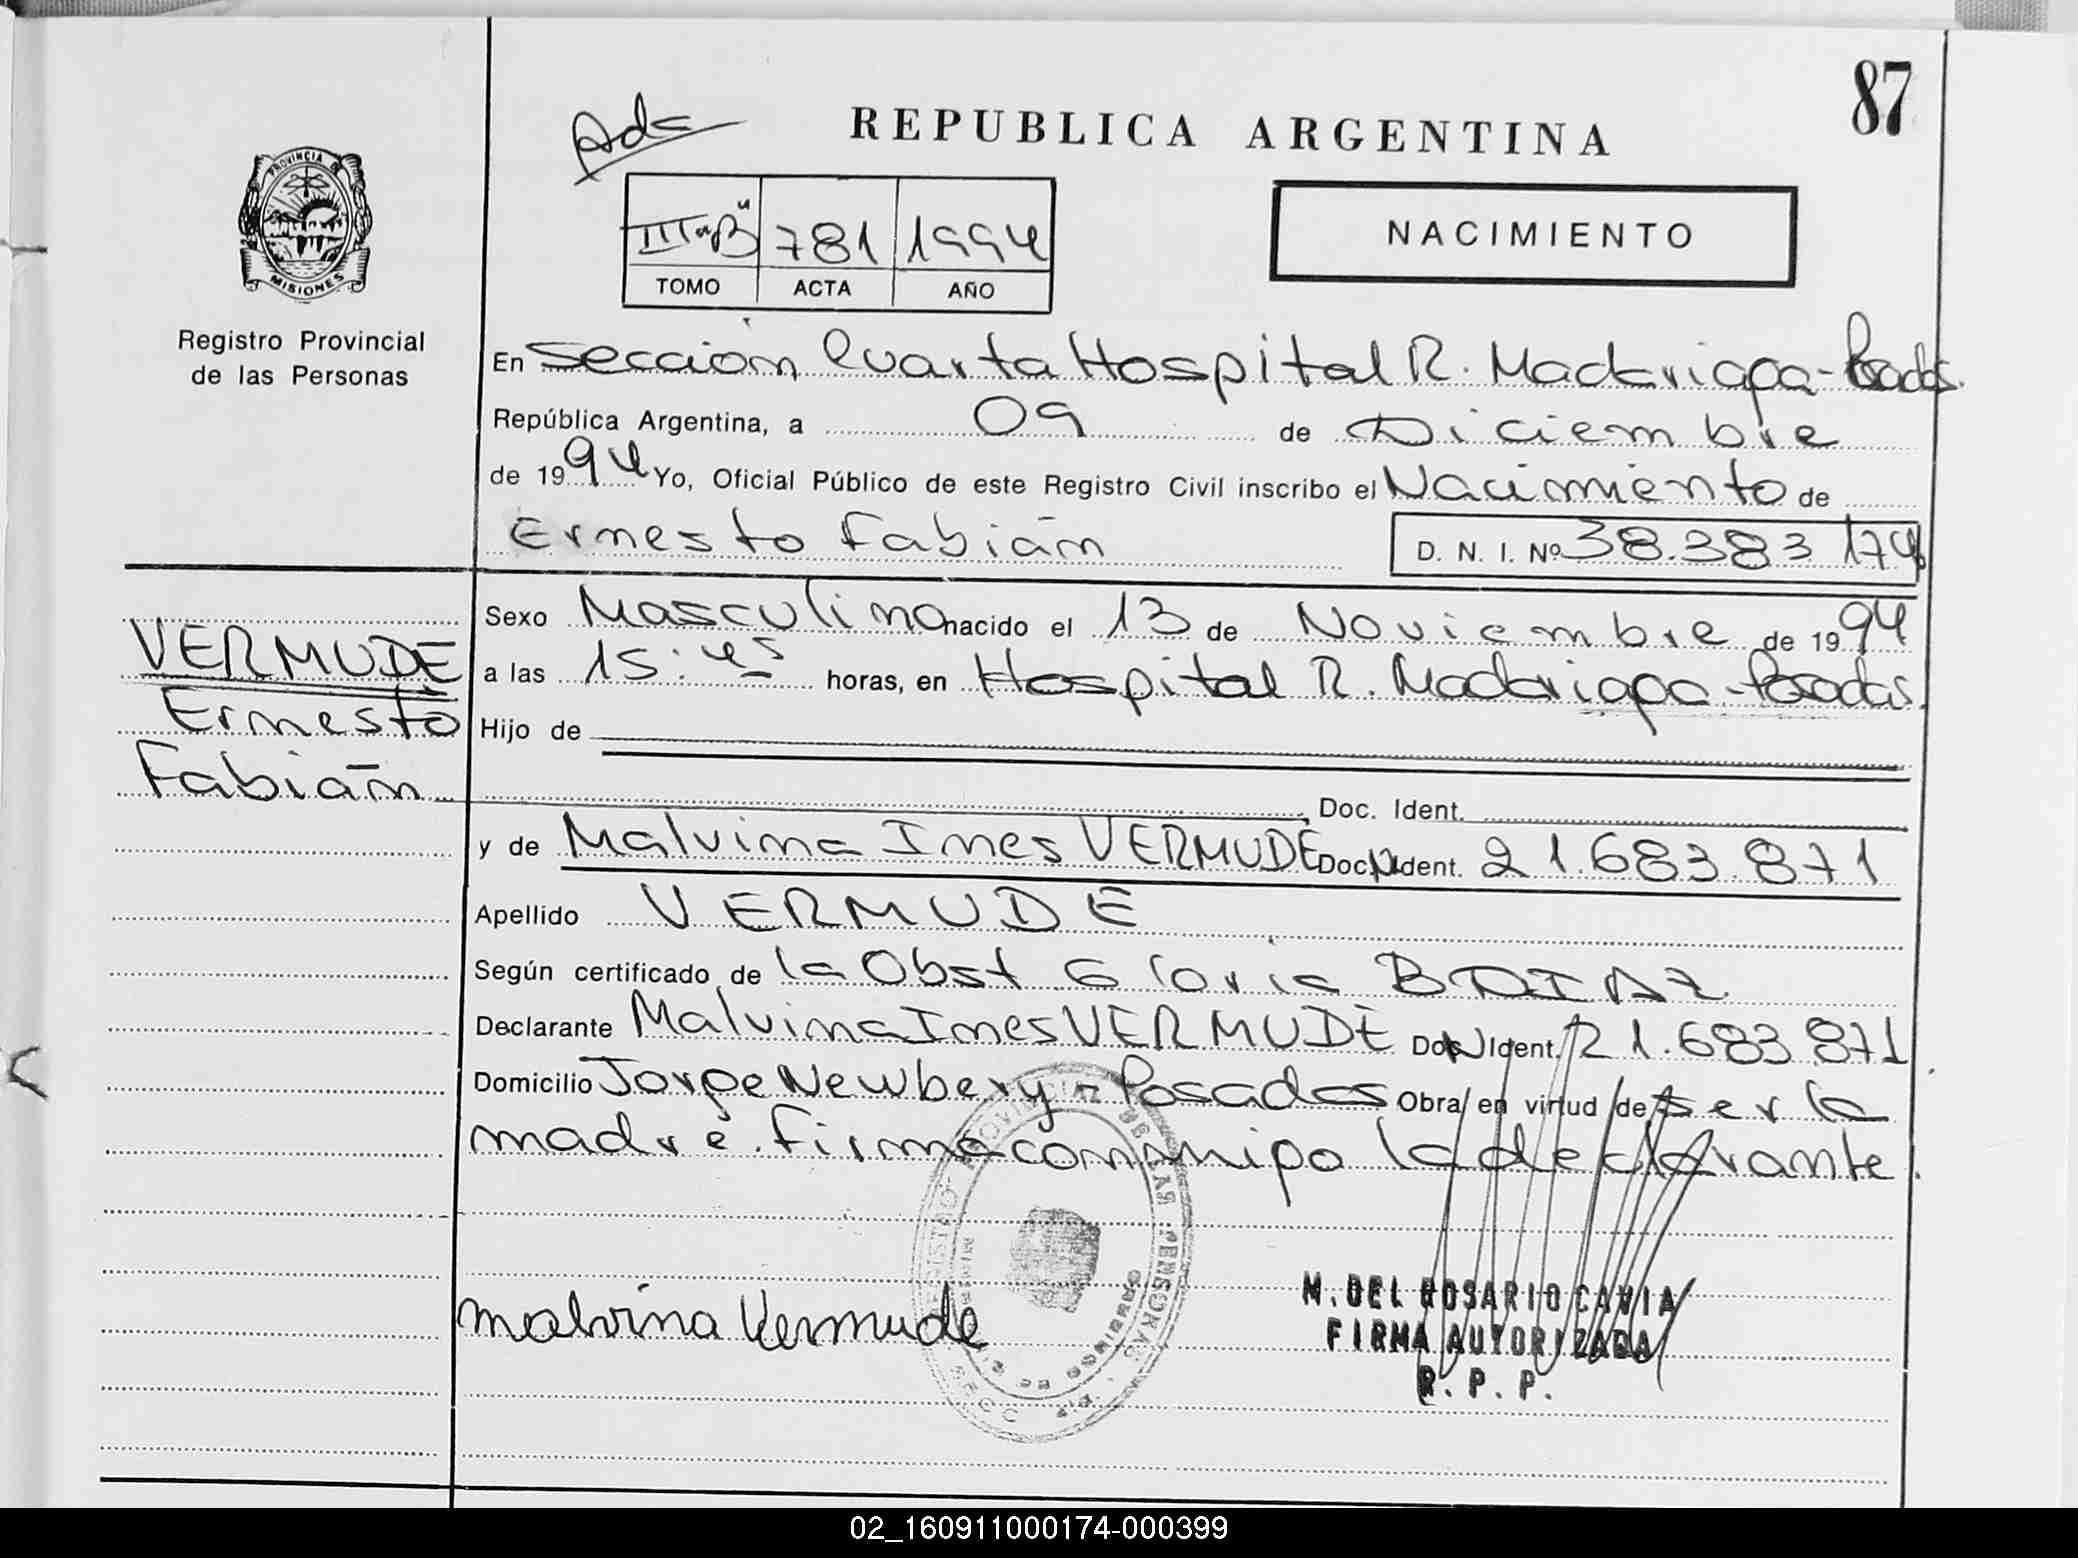 87
Ads
REPUBLICA ARGENTINA
PROVINCIA DE
MISIONES
III "B" 781 1994
TOMO ACTA AÑO
NACIMIENTO
Registro Provincial
de las Personas
En Sección Cuarta Hospital R. Madariaga - Posadas.
República Argentina, a 09 de Diciembre
de 1994 Yo, Oficial Público de este Registro Civil inscribo el Nacimiento de
Ernesto Fabián D. N. I. Nº 38.383 174
VERMUDE
Ernesto
Fabián
Sexo Masculino nacido el 13 de Noviembre de 1994
a las 15:45 horas, en Hospital R. Madariaga - Posadas.
Hijo de
Doc. Ident.
y de Malvina Ines VERMUDE Doc. Ident. 21.683.871
Apellido VERMUDE
Según certificado de la Obst Gloria B DIAZ
Declarante Malvina Ines VERMUDE Doc Ident. 21.683.871
Domicilio Jorge Newbery - Posadas Obra en virtud de ser la
madre. firma conmigo la declarante.
Malvina Vermude
M. DEL ROSARIO CAVIA
FIRMA AUTORIZADA
R. P. P.
02_160911000174-000399